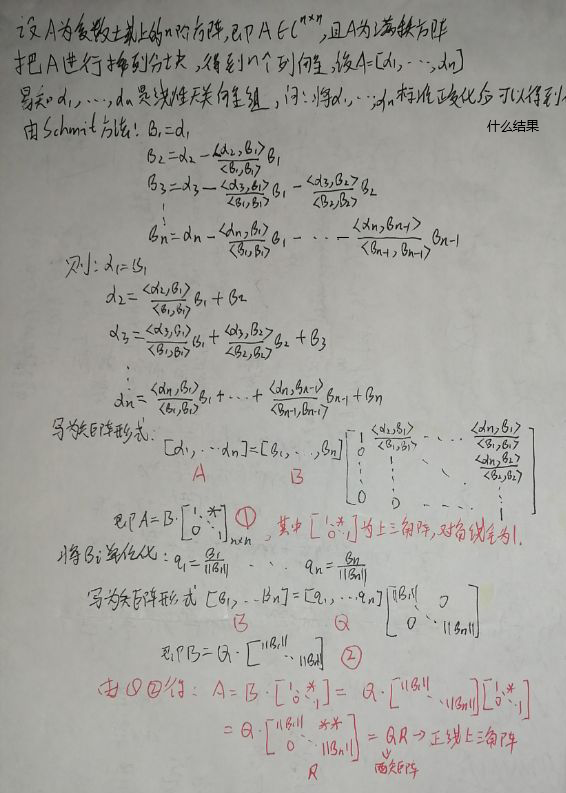 设A为复数域上的n阶方阵,即A∈C^{n×n},且A为满秩方阵
把A进行按列分块,得到n个列向量,设A=[α₁,⋯,αn]
易知α₁,⋯,αn是线性无关向量组,问:将α₁,⋯,αn标准正交化后可以得到
什么结果
由Schmit方法: β₁=α₁
β₂=α₂-<α₂,β₁>/<β₁,β₁> β₁
β₃=α₃-<α₃,β₁>/<β₁,β₁> β₁-<α₃,β₂>/<β₂,β₂> β₂
⋮
βn=αn-<αn,β₁>/<β₁,β₁> β₁-⋯-<αn,βn-1>/<βn-1,βn-1> βn-1
则: α₁=β₁
α₂=<α₂,β₁>/<β₁,β₁> β₁+β₂
α₃=<α₃,β₁>/<β₁,β₁> β₁+<α₃,β₂>/<β₂,β₂> β₂+β₃
⋮
αn=<αn,β₁>/<β₁,β₁> β₁+⋯+<αn,βn-1>/<βn-1,βn-1> βn-1+βn
写为矩阵形式:
[α₁,⋯αn]=[β₁,⋯,βn] [1 <α₂,β₁>/<β₁,β₁> ⋯ <αn,β₁>/<β₁,β₁>
0 1 ⋱ <αn,β₂>/<β₂,β₂>
⋮ ⋮ ⋱ ⋮
0 0 ⋯ 1]
A B
即A=B·[1 * 0 ⋱ 1]n×n ①,其中[1 * 0 ⋱ 1]为上三角阵,对角线元为1.
将βi单位化: q₁=β₁/||β₁|| ⋯ qn=βn/||βn||
写为矩阵形式 [β₁,⋯βn]=[q₁,⋯qn] [||β₁|| 0 0 ⋱ ||βn||]
B Q
即B=Q·[||β₁|| ⋱ ||βn||] ②
由①②得: A=B·[1 * 0 ⋱ 1]=Q·[||β₁|| ⋱ ||βn||][1 * 0 ⋱ 1]
=Q·[||β₁|| ** 0 ⋱ ||βn||]=QR→正线上三角阵
R 酉矩阵